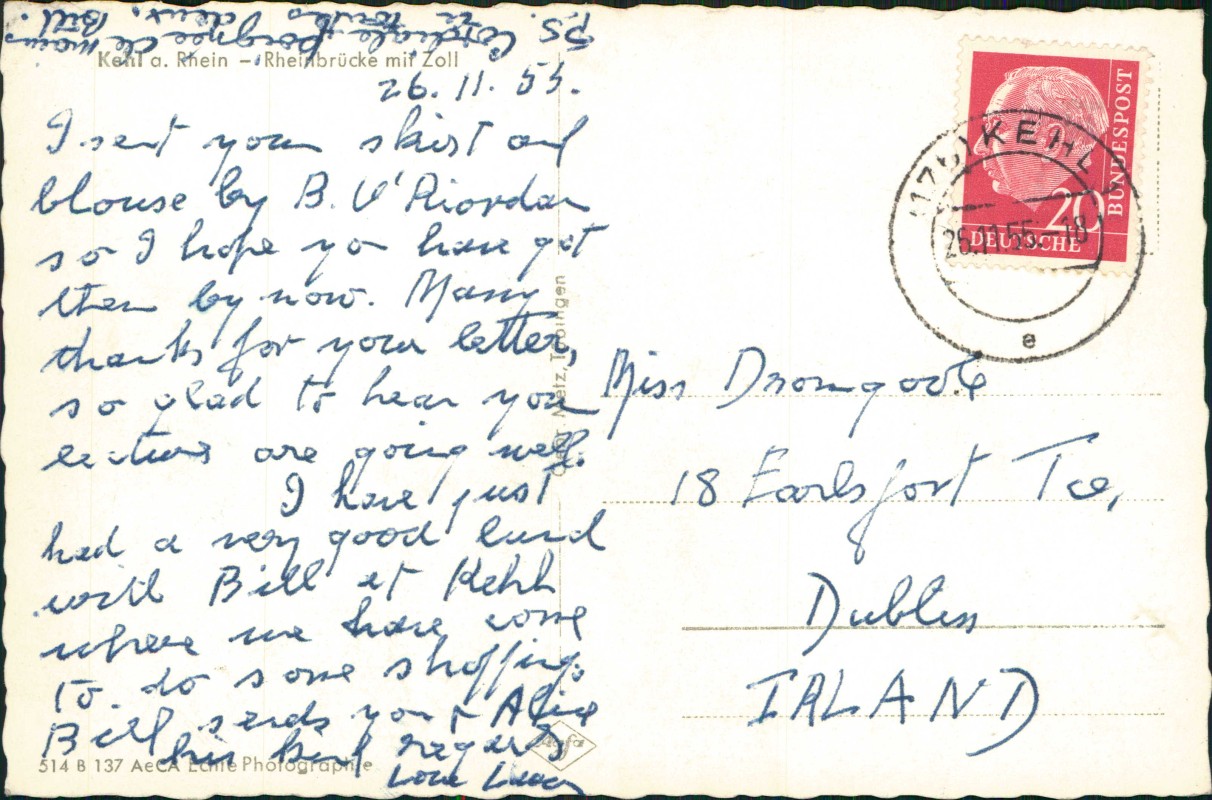 P.S. Cordiale poignée de main
à toutes deux, Bill.
Kehl a. Rhein – Rheinbrücke mit Zoll
26.11.55.
I sent your skirt and
blouse by B. O'Riordan
so I hope you have got
them by now. Many
thanks for your letter,
so glad to hear your
lectures are going well.
I have just
had a very good lunch
with Bill at Kehl
where we have come
to do some shopping.
Bill sends you & Alice
his best regards
Love
514 B 137 AeCA Echte Photographie
Metz, Tübingen
DEUTSCHE
BUNDESPOST
20
KEHL
26.11.55.–18
e
Miss Dromgoole
18 Earlsfort Tce,
Dublin
IRLAND